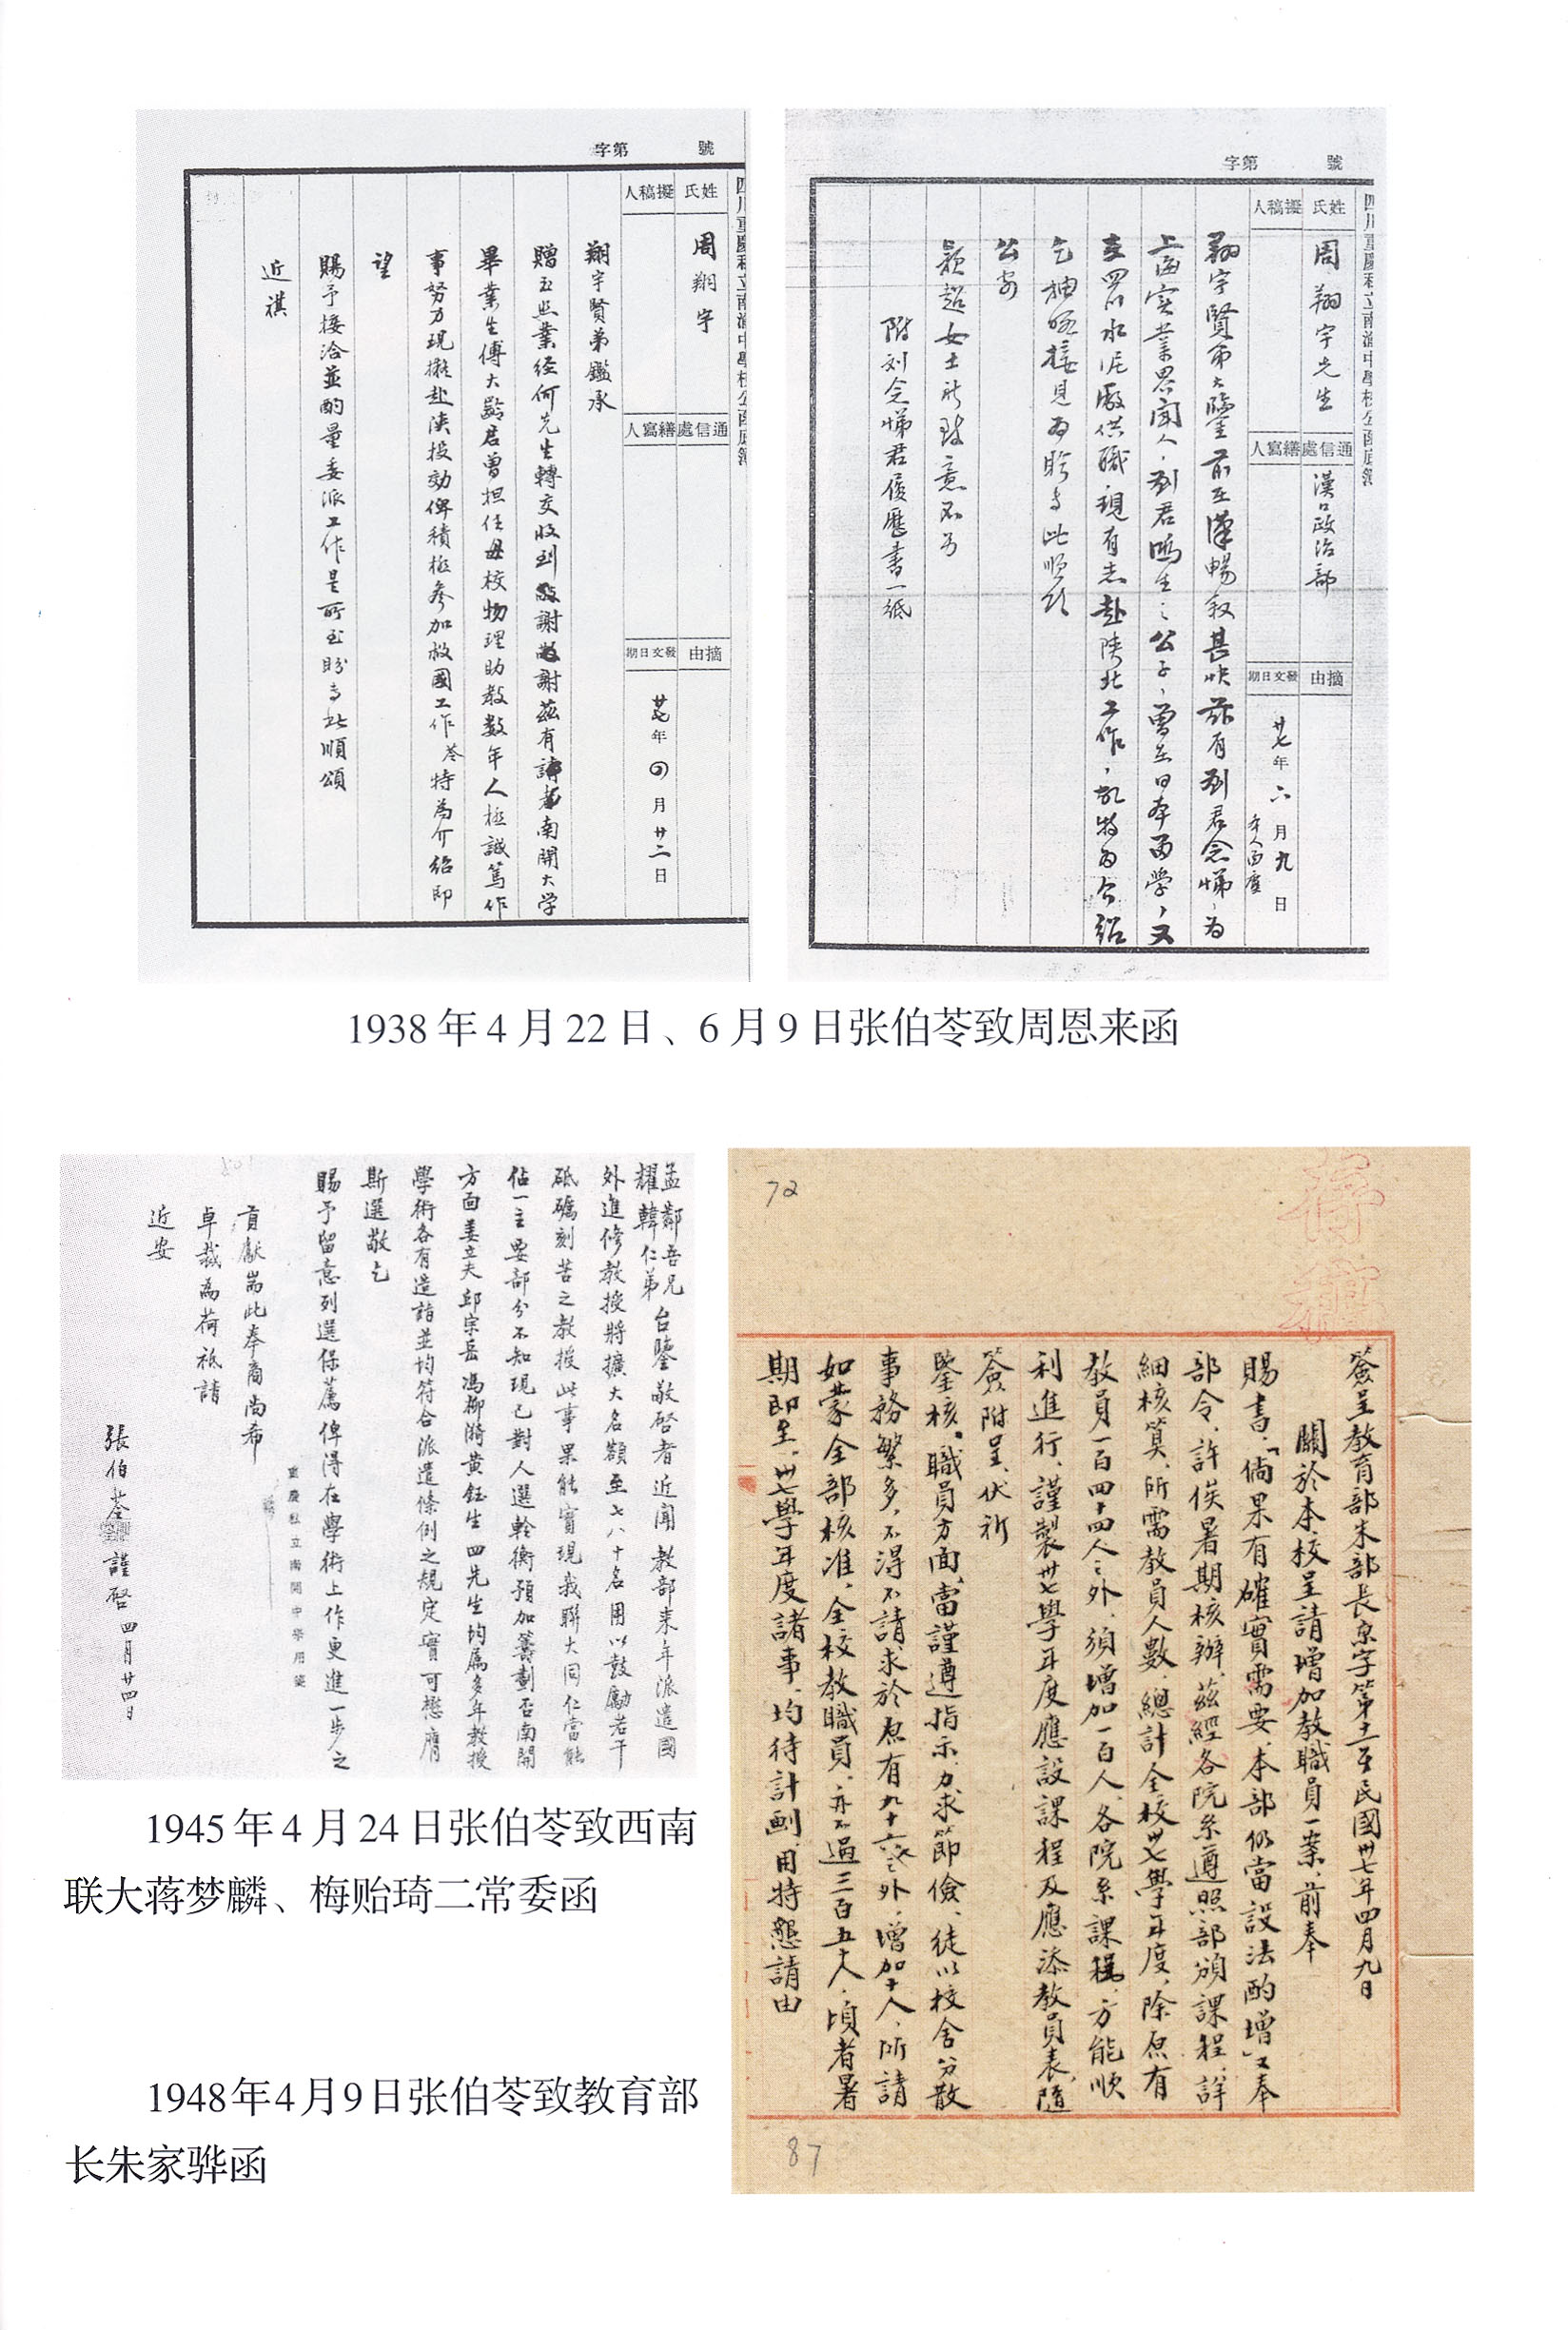 號
字第
四川重慶私立南渝中學校公函底簿
姓氏
擬稿人
周翔宇
通信處
繕寫人
摘由
發文日期
廿七年四月廿二日
翔宇賢弟鑑承
贈玉照業经何先生轉交收到敬謝敬謝茲有南開大学
畢業生傅大齡君曾担任母校物理助教数年人極誠篤作
事努力現擬赴陕投効俾積極参加救國工作苓特為介紹即
望
賜予接洽並酌量委派工作是所至盼专此順頌
近祺
號
字第
四川重慶私立南渝中學校公函底簿
姓氏
擬稿人
周翔宇先生
通信處
繕寫人
漢口政治部
摘由
發文日期
廿七年六月九日
翔宇賢弟大鑒前在漢暢叙甚快茲有劉君念悌、为
上海实業界闻人、劉君鴻生之公子、曾在日本留学、又
在四川水泥廠供職、现有志赴陕北工作、故特为介紹
乞抽暇接見为盼专此順頌
公安
穎超女士祈致意不另
附刘念悌君履歷書一紙
1938年4月22日、6月9日张伯苓致周恩来函
孟鄰吾兄
耀韓仁弟
台鑒敬啓者近聞教部来年派遣國
外進修教授將擴大名額至七八十名用以鼓勵若干
砥礪刻苦之教授此事果能實現我聯大同仁當能
佔一主要部分不知現已對人選軫衡預加籌劃否南開
方面姜立夫邱宗岳馮柳漪黄鈺生四先生均屬多年教授
學術各有造詣並均符合派遣條例之規定實可懋膺
斯選敬乞
賜予留意列選保薦俾得在學術上作更進一步之
重慶私立南開中學用箋
貢獻耑此奉商尚希
卓裁為荷祗請
近安
張伯苓謹啓 四月廿四日
1945年4月24日张伯苓致西南
联大蒋梦麟、梅贻琦二常委函
72
簽呈教育部朱部長京字第十二号民國卅七年四月九日
關於本校呈請增加教職員一案、前奉
賜書、「倘果有確實需要、本部仍當設法酌增」又奉
部令、許俟暑期核辦、茲經各院系遵照部頒課程、詳
細核算、所需教員人數、總計全校卅七學年度、除原有
教員一百四十四人之外、須增加一百人、各院系課程、方能順
利進行、謹製卅七學年度應設課程及應添教員表、隨
簽附呈、伏祈
鑒核。職員方面、當謹遵指示、力求節儉、徒以校舍分散
事務繁多、不得不請求於原有九十六人之外、增加十人、所請
如蒙全部核准、全校教職員、亦不過三百五十人、頃者暑
期即至、卅七學年度諸事、均待計劃、用特懇請由
87
1948年4月9日张伯苓致教育部
长朱家骅函